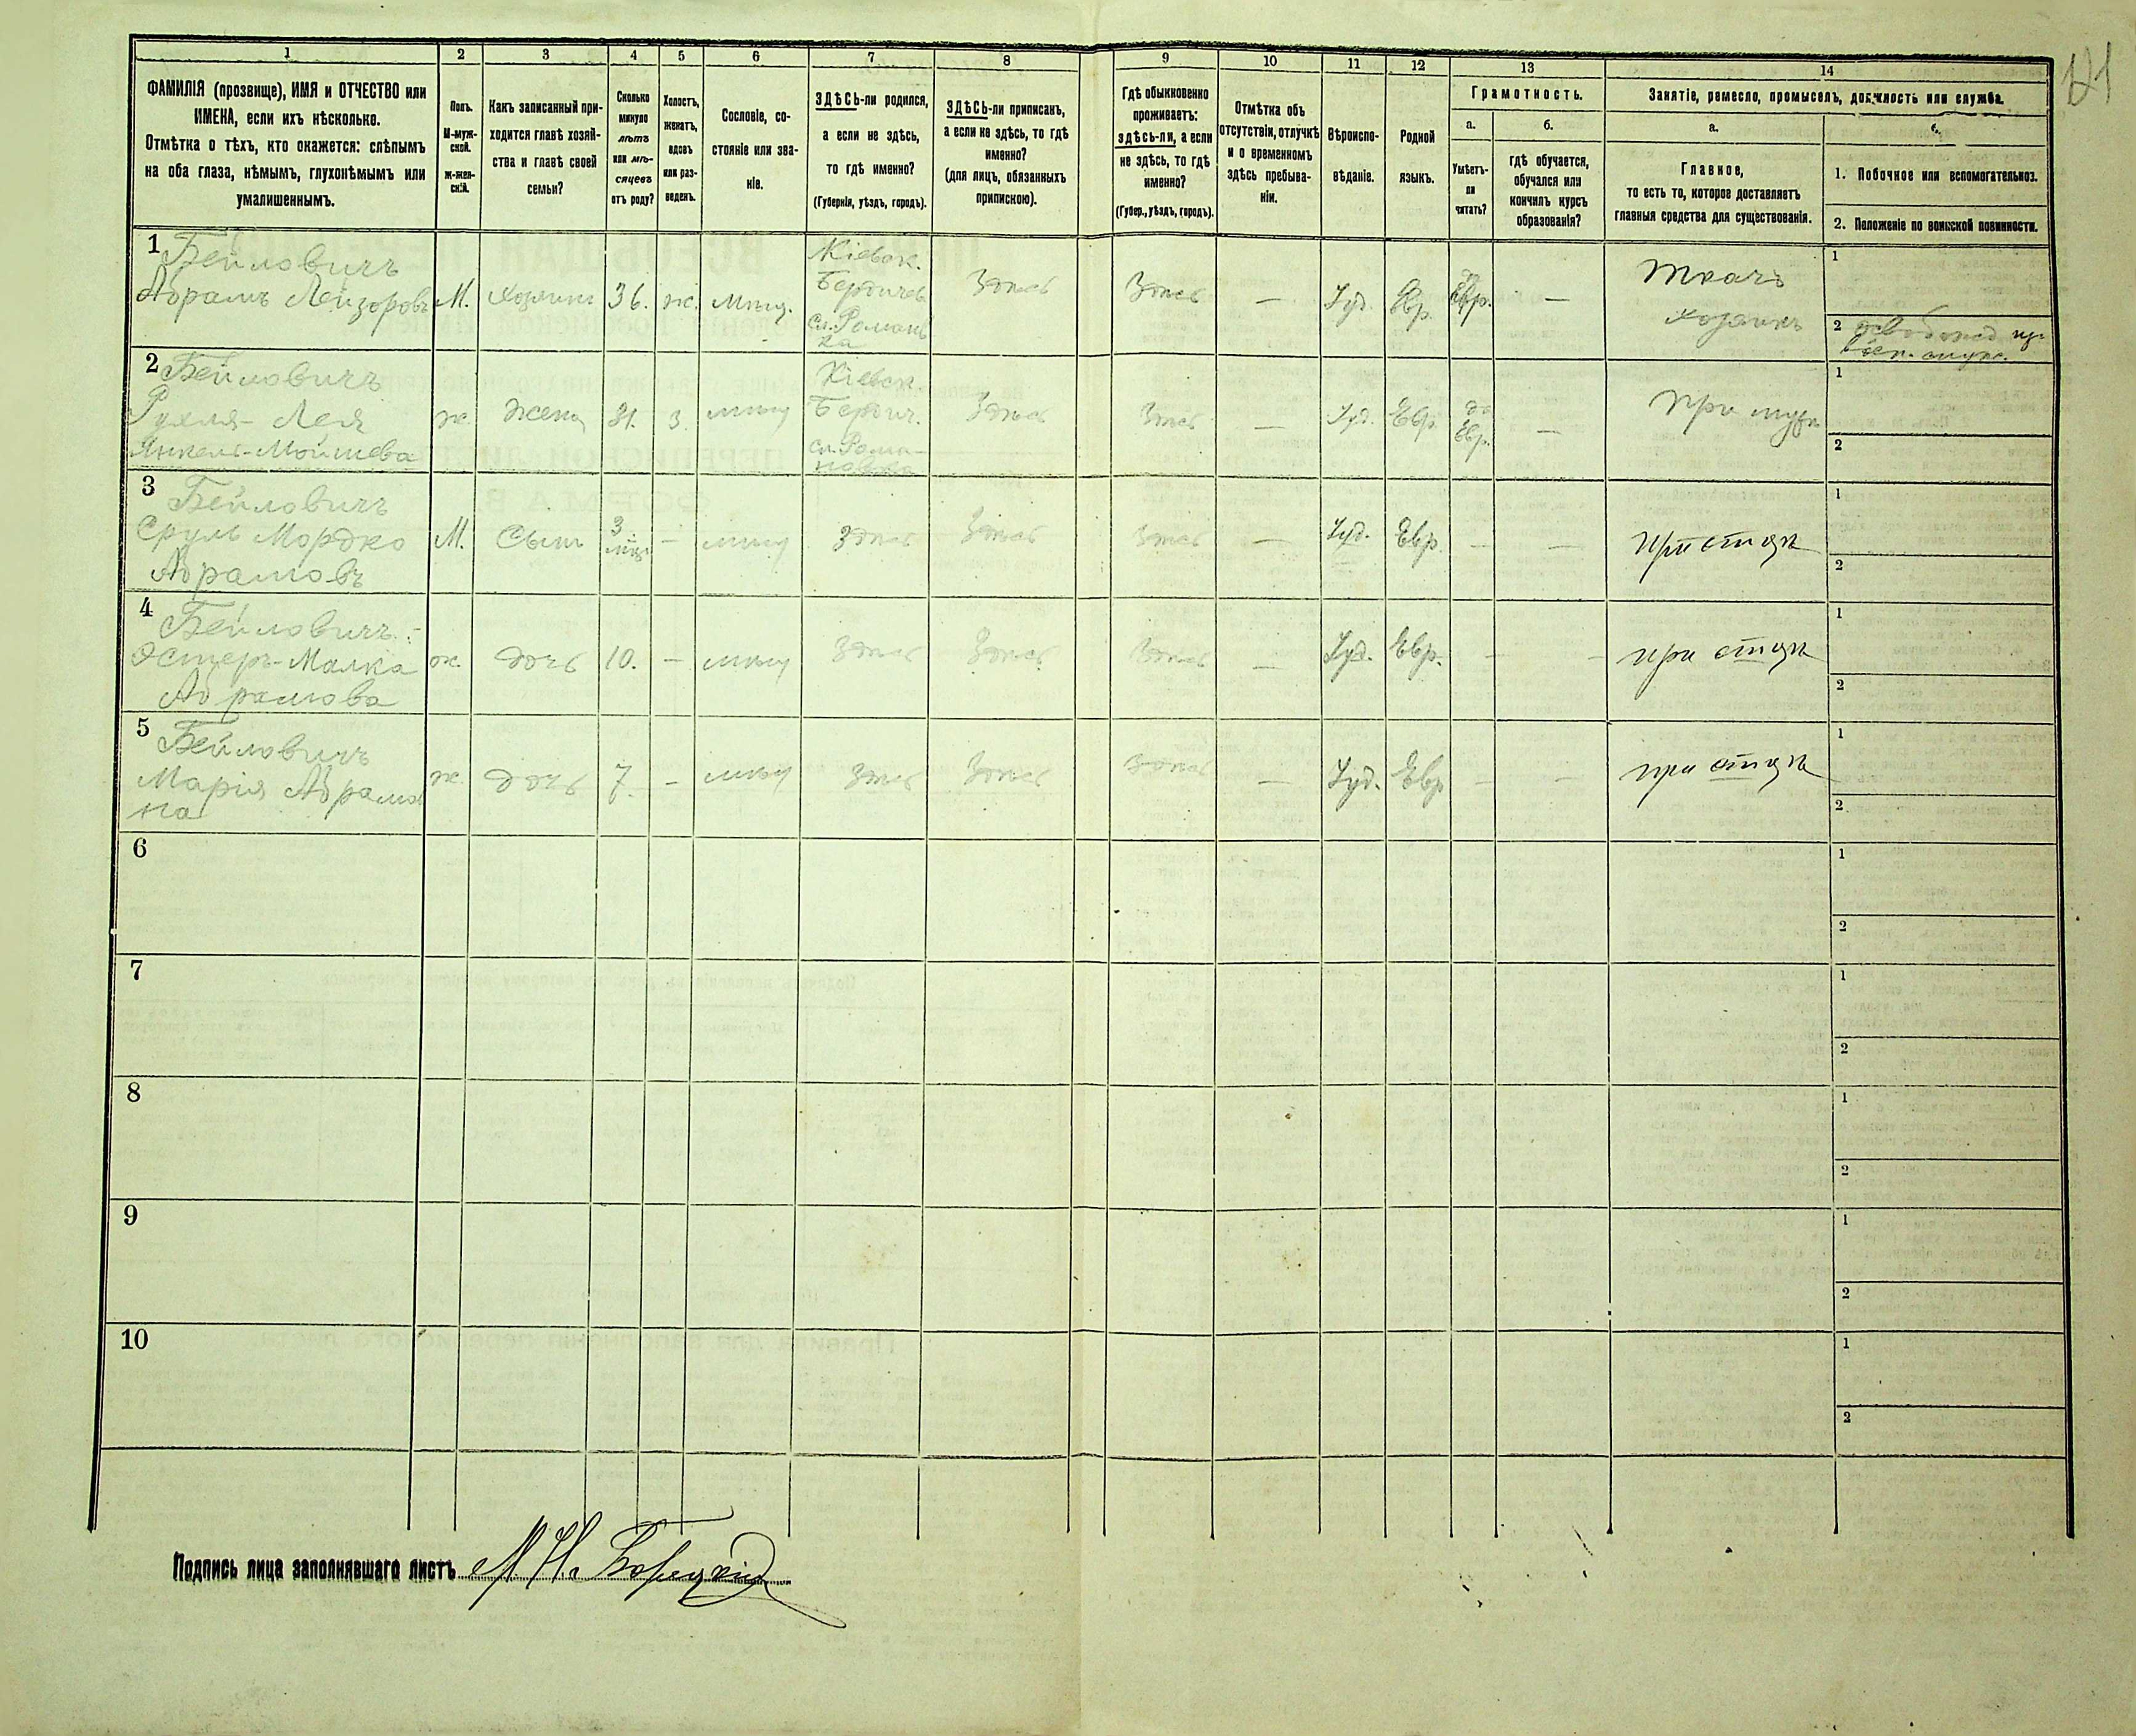 121
1
2
3
4
5
6
7
8
9
10
11
12
13
14
ФАМИЛІЯ (прозвище), ИМЯ и ОТЧЕСТВО или
ИМЕНА, если ихъ нѣсколько.
Отмѣтка о тѣхъ, кто окажется: слѣпымъ
на оба глаза, нѣмымъ, глухонѣмымъ или
умалишеннымъ.
Полъ.
М-муж-
ской.
ж-жен-
скій.
Какъ записанный при-
ходится главѣ хозяй-
ства и главѣ своей
семьи?
Сколько
минуло
лѣтъ
или мѣ-
сяцевъ
отъ роду?
Холостъ,
женатъ,
вдовъ
или раз-
веденъ.
Сословіе, со-
стояніе или зва-
ніе.
ЗДѢСЬ-ли родился,
а если не здѣсь,
то гдѣ именно?
(Губернія, уѣздъ, городъ).
ЗДѢСЬ-ли приписанъ,
а если не здѣсь, то гдѣ
именно?
(для лицъ, обязанныхъ
припискою).
Гдѣ обыкновенно
проживаетъ:
здѣсь-ли, а если
не здѣсь, то гдѣ
именно?
(Губер., уѣздъ, городъ).
Отмѣтка объ
отсутствіи, отлучкѣ
и о временномъ
здѣсь пребыва-
ніи.
Вѣроиспо-
вѣданіе.
Родной
языкъ.
Грамотность.
а.
Умѣетъ-
ли
читать?
б.
гдѣ обучается,
обучался или
кончилъ курсъ
образованія?
Занятіе, ремесло, промыселъ, должность или служба.
а.
Главное,
то есть то, которое доставляетъ
главныя средства для существованія.
1. Побочное или вспомогательное.
2. Положеніе по воинской повинности.
1 Бейловичъ
Абрамъ Лейзоровъ
М.
хозяинъ
36.
ж.
мѣщ.
Кіевск.
Бердичев.
сл. Романов
ка
Здѣсь
Здѣсь
—
Іуд.
Евр.
да
Евр.
—
Ткачъ
хозяинъ
1
2 освобожд
2 Бейловичъ
Рухля-Лея
Янкель-Мойшева
ж.
жена
31.
з.
мѣщ
Кіевск.
Бердич.
сл. Рома-
новка
Здѣсь
Здѣсь
—
Іуд.
Евр.
да
Евр.
—
При мужѣ
1
2
3 Бейловичъ
Сруль Мордко
Абрамовъ
М.
Сынъ
3
мѣс
—
мѣщ
Здѣсь
Здѣсь
Здѣсь
—
Іуд.
Евр.
—
—
При отцѣ
1
2
4 Бейловичъ
Эстеръ-Малка
Абрамова
ж.
дочь
10.
—
мѣщ
Здѣсь
Здѣсь
Здѣсь
—
Іуд.
Евр.
—
—
при отцѣ
1
2
5 Бейловичъ
Марія Абрамов
на
ж.
дочь
7.
—
мѣщ
Здѣсь
Здѣсь
Здѣсь
—
Іуд.
Евр
—
—
при отцѣ
1
2
6
1
2
7
1
2
8
1
2
9
1
2
10
1
2
Подпись лица заполнявшаго листъ